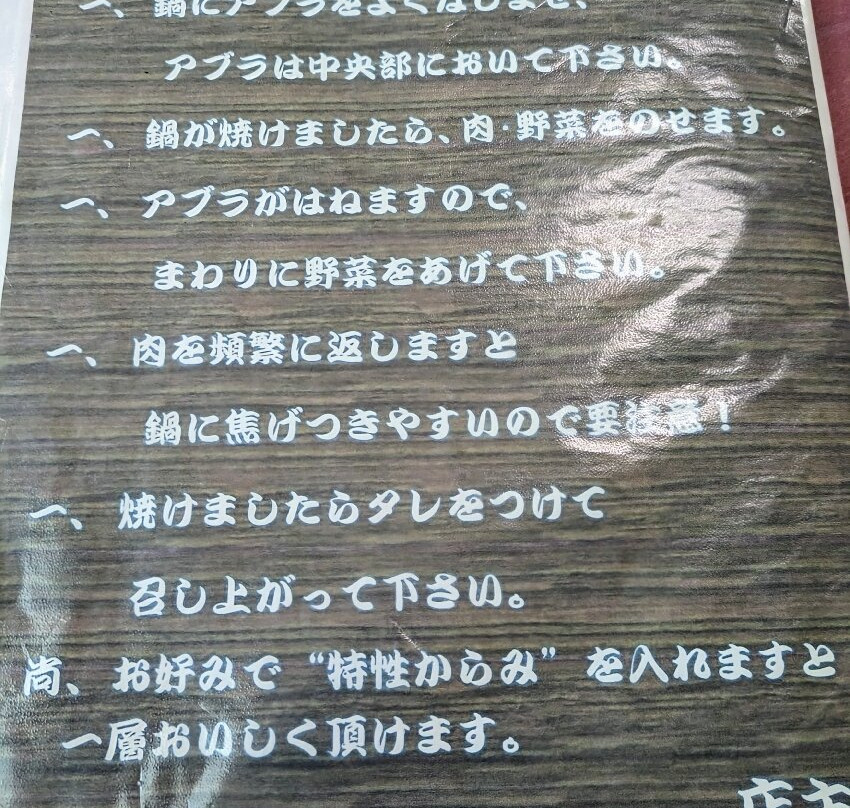 一、鍋にアブラをよくなじませ、
アブラは中央部において下さい。
一、鍋が焼けましたら、肉・野菜をのせます。
一、アブラがはねますので、
まわりに野菜をあげて下さい。
一、肉を頻繁に返しますと
鍋に焦げつきやすいので要注意！
一、焼けましたらタレをつけて
召し上がって下さい。
尚、お好みで“特性からみ”を入れますと
一層おいしく頂けます。